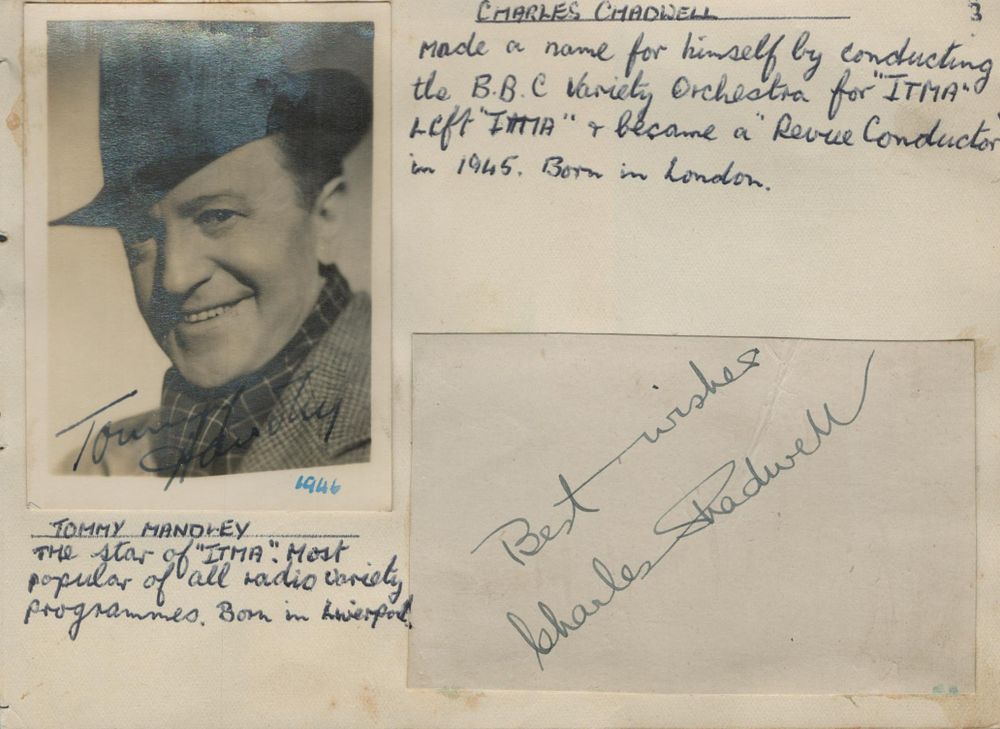 CHARLES CHADWELL
3
Made a name for himself by conducting
the B.B.C Variety Orchestra for "ITMA".
Left "ITMA" & became a "Revue Conductor"
in 1945. Born in London.
Tommy
Handley
1946
TOMMY HANDLEY
THE star of "ITMA". Most
popular of all radio variety
programmes. Born in Liverpool.
Best wishes
Charles Shadwell